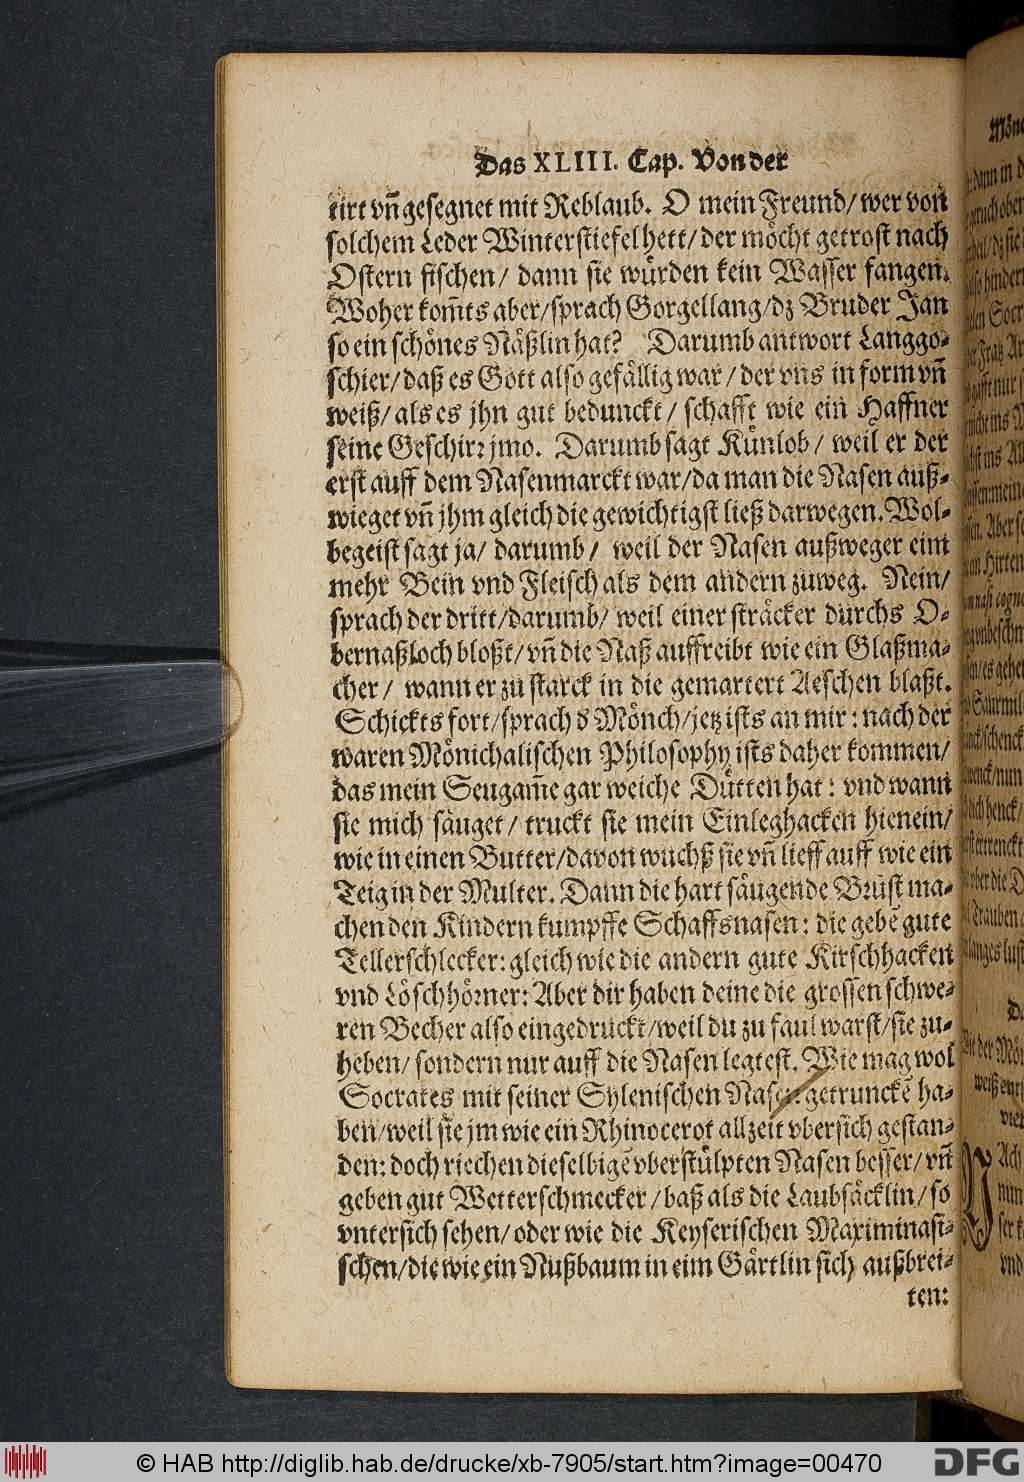 Das XLIII. Cap. Von der
tirt vn̄ gesegnet mit Reblaub. O mein Freund/ wer von
solchem Leder Winterstiefel hett/ der möcht getrost nach
Ostern fischen/ dann sie würden kein Wasser fangen.
Woher kom̄ts aber/ sprach Gorgellang/ dz Bruder Jan
so ein schönes Näßlin hat? Darumb antwort Langgo-
schier/ daß es Gott also gefällig war/ der vns in form vn̄
weiß/ als es jhn gut bedunckt/ schafft wie ein Haffner
seine Geschirr jmo. Darumb sagt Künlob/ weil er der
erst auff dem Nasenmarckt war/ da man die Nasen auß-
wieget vn̄ jhm gleich die gewichtigst ließ darwegen. Wol-
begeist sagt ja/ darumb/ weil der Nasen außweger eim
mehr Bein vnd Fleisch als dem andern zuweg. Nein/
sprach der dritt/ darumb/ weil einer sträcker durchs O-
bernaßloch bloßt/ vn̄ die Naß auffreibt wie ein Glaßma-
cher/ wann er zu starck in die gemartert Aeschen blaßt.
Schickts fort/ sprach d̕ Mönch/ jetz ists an mir: nach der
waren Mönichalischen Philosophy ists daher kommen/
das mein Seugam̄e gar weiche Dütten hat: vnd wann
sie mich säuget/ truckt sie mein Einleghacken hienein/
wie in einen Butter/ davon wuchß sie vn̄ lieff auff wie ein
Teig in der Multer. Dann die hart säugende Brüst ma-
chen den Kindern kumpffe Schaffsnasen: die gebē gute
Tellerschlecker: gleich wie die andern gute Kirschhacken
vnd Löschhörner: Aber dir haben deine die grossen schwe-
ren Becher also eingedruckt/ weil du zu faul warst/ sie zu-
heben/ sondern nur auff die Nasen legtest. Wie mag wol
Socrates mit seiner Sylenischen Nasen getrunckē ha-
ben/ weil sie jm wie ein Rhinocerot allzeit vbersich gestan-
den: doch riechen dieselbigē vberstülpten Nasen besser/ vn̄
geben gut Wetterschmecker/ baß als die Laubsäcklin/ so
vntersich sehen/ oder wie die Keyserischen Maximinasi-
schen/ die wie ein Nußbaum in eim Gärtlin sich außbrei-
ten:
© HAB http://diglib.hab.de/drucke/xb-7905/start.htm?image=00470
DFG